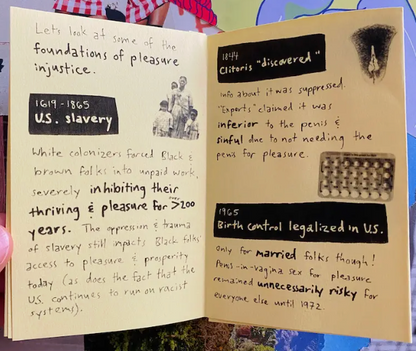 Let's look at some of the
foundations of pleasure
injustice.
1619-1865
U.S. slavery
White colonizers forced Black &
brown folks into unpaid work,
severely inhibiting their
thriving & pleasure for >200
years. The oppression & trauma
of slavery still impacts Black folks'
access to pleasure & prosperity
today (as does the fact that the
U.S. continues to run on racist
systems).
1844
Clitoris "discovered"
Info about it was suppressed.
"Experts" claimed it was
inferior to the penis &
sinful due to not needing the
penis for pleasure.
1965
Birth control legalized in U.S.
Only for married folks though!
Penis-in-vagina sex for pleasure
remained unnecessarily risky for
everyone else until 1972.